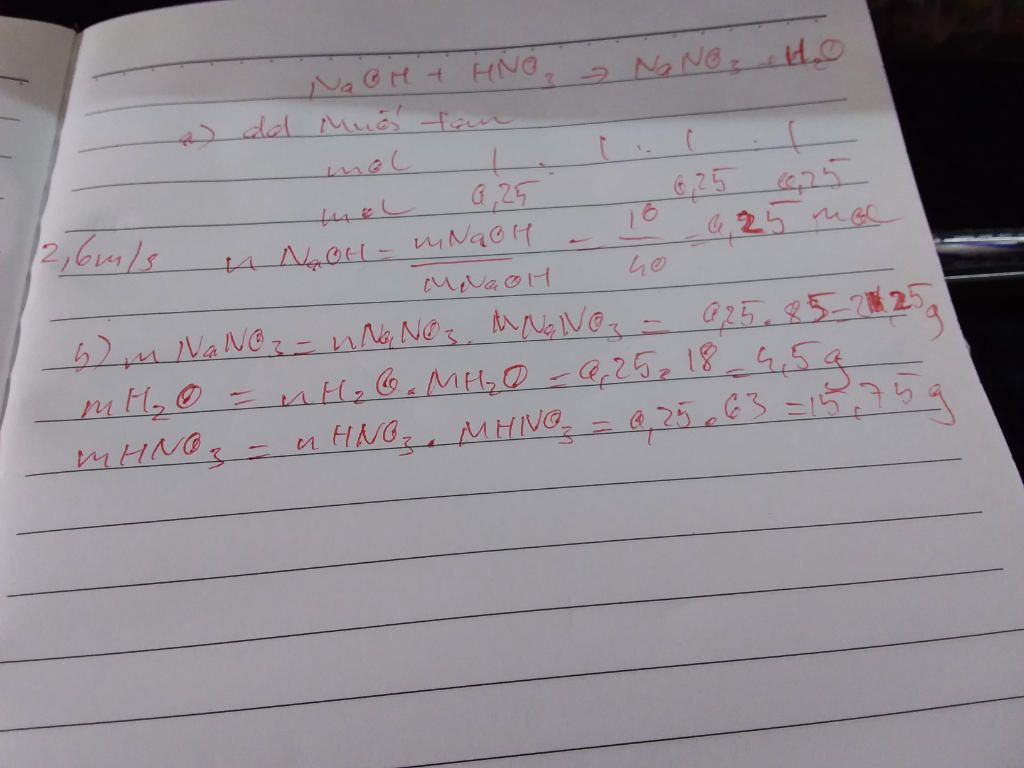 NaOH + HNO3 → NaNO3 + H2O
a) dd Muối tan
mol 1 : 1 : 1 : 1
mol 0,25 0,25 0,25
2,6m/s n NaOH = mNaOH / MNaOH = 10 / 40 = 0,25 mol
b) m NaNO3 = nNaNO3 . MNaNO3 = 0,25 . 85 = 21,25g
mH2O = nH2O . MH2O = 0,25 . 18 = 4,5g
mHNO3 = nHNO3 . MHNO3 = 0,25 . 63 = 15,75g